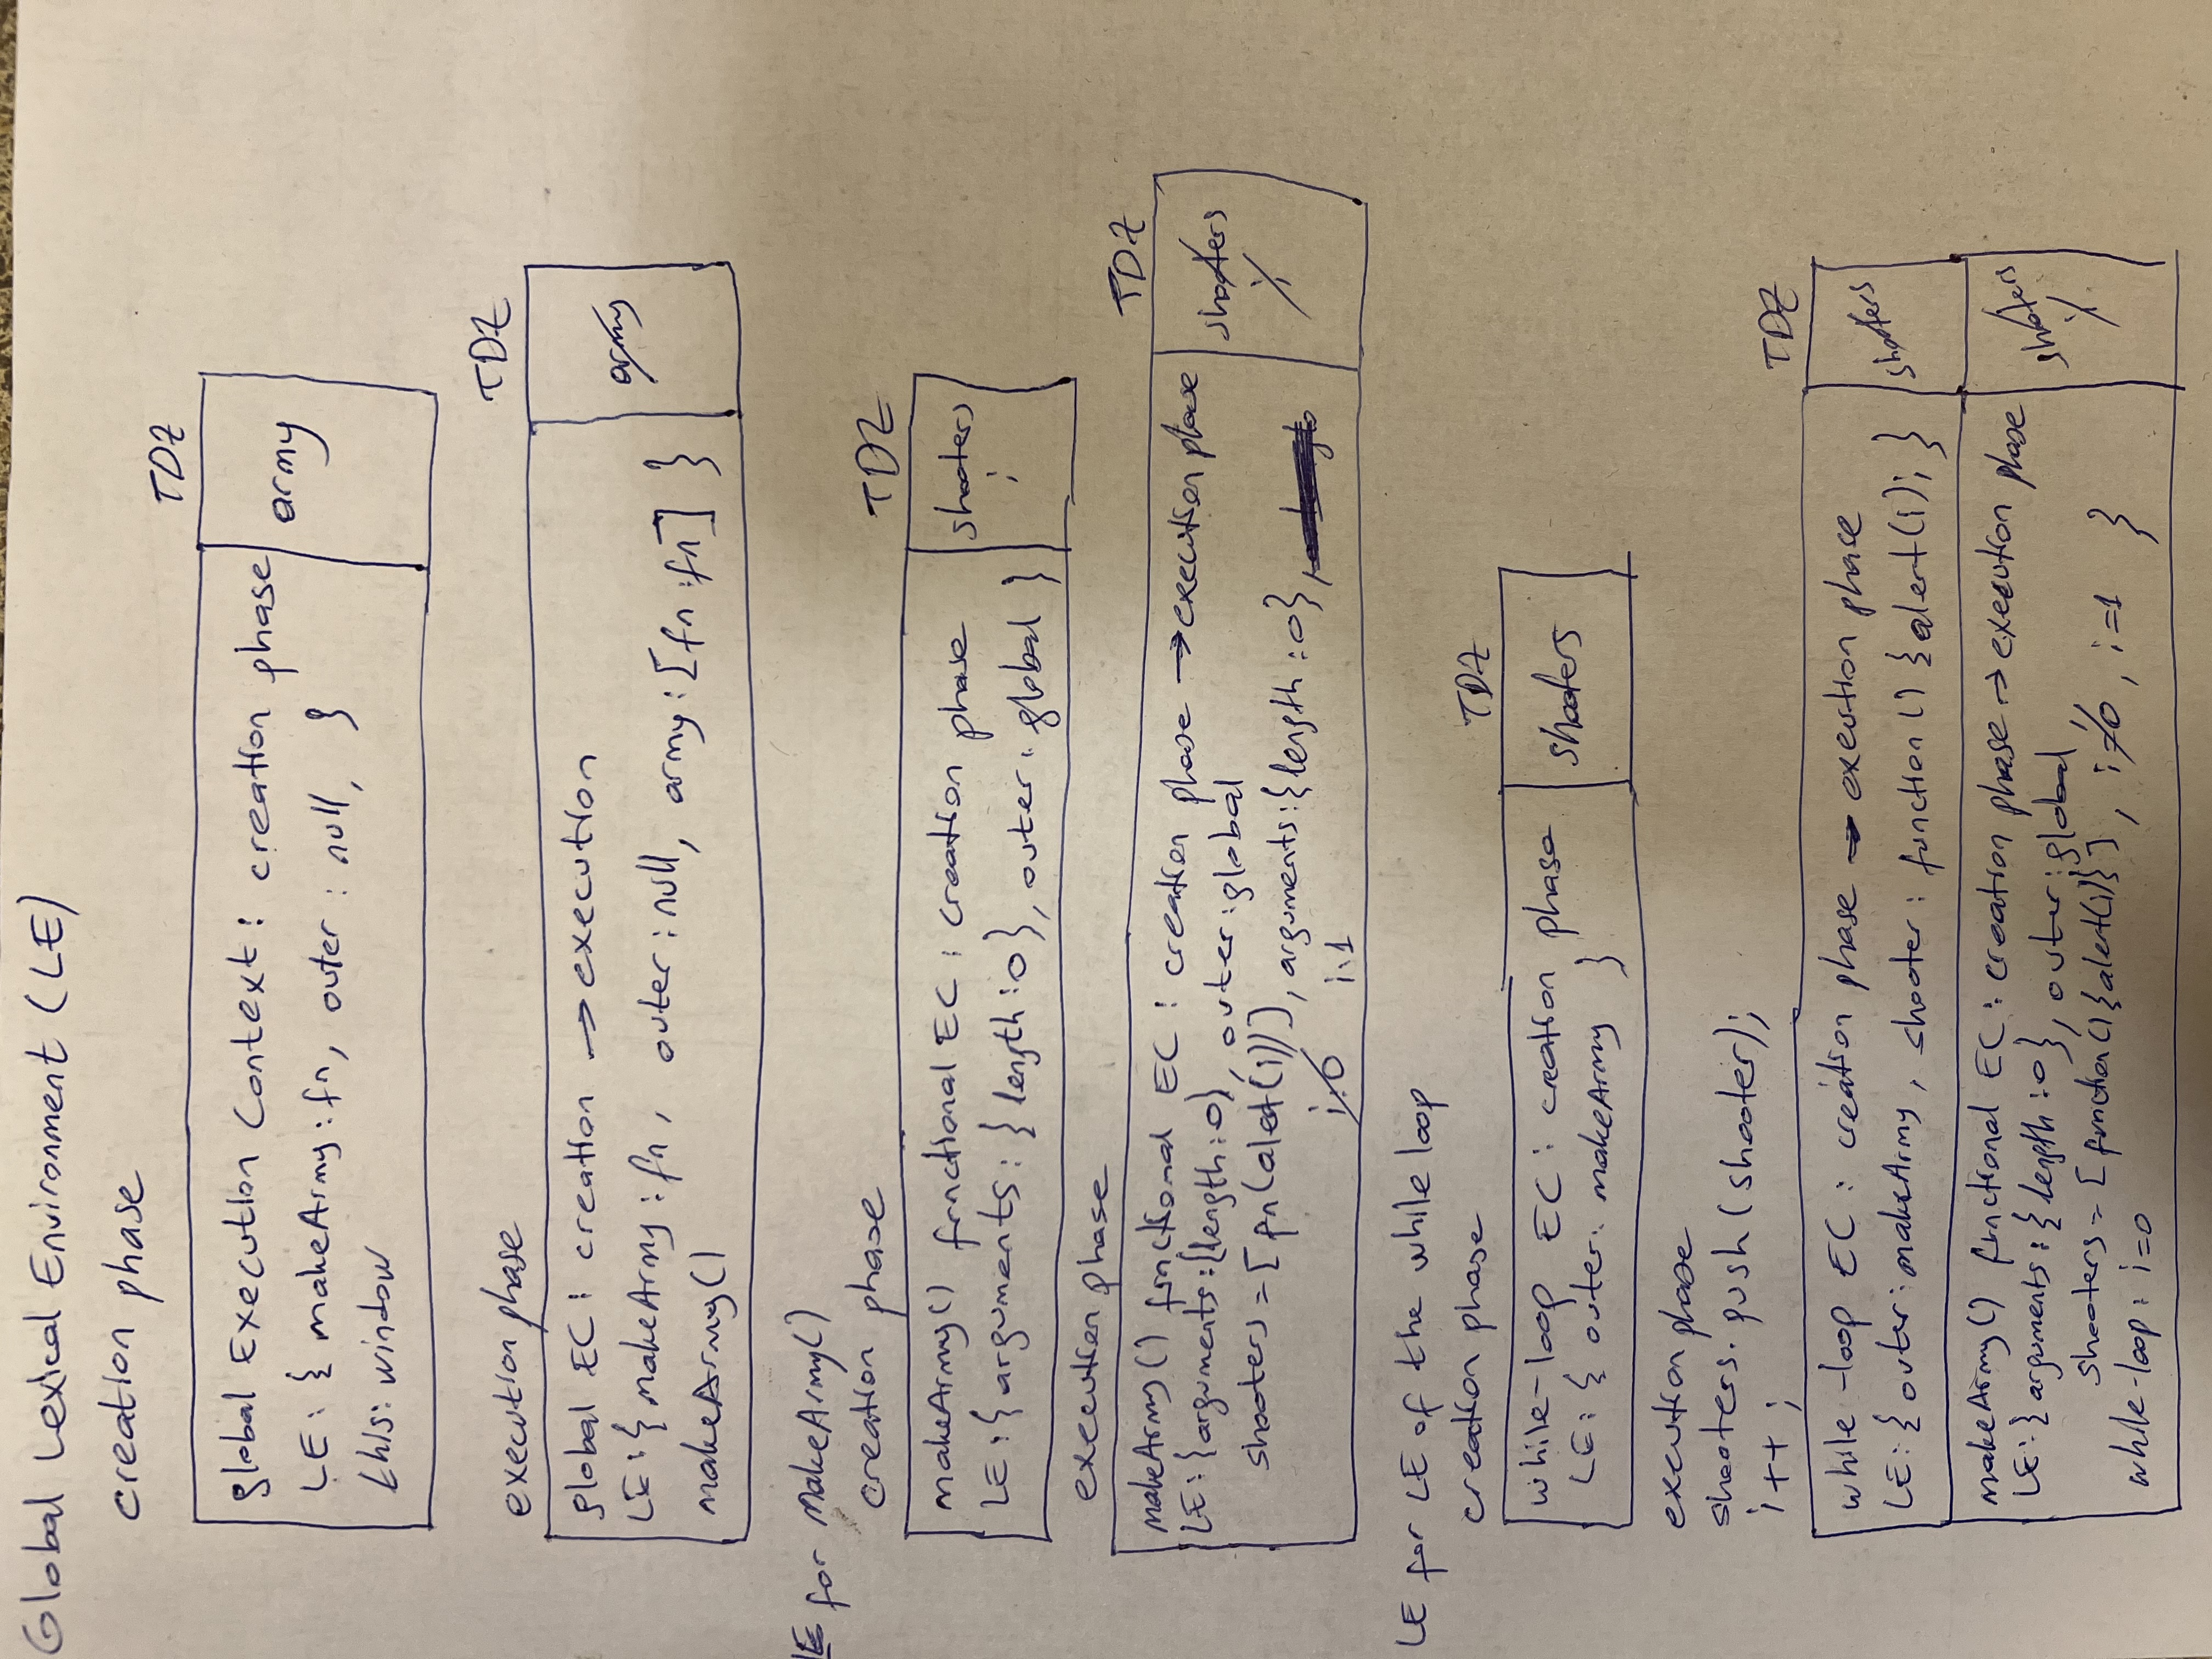 Global Lexical Environment (LE)
creation phase
TDZ
global Execution Context : creation phase
army
LE : { makeArmy : fn, outer : null, }
this: window
execution phase
TDZ
global EC : creation → execution
army
LE : { makeArmy : fn, outer : null, army : [fn : fn] }
makeArmy()
LE for makeArmy()
creation phase
TDZ
makeArmy() functional EC : creation phase
shooters
LE : { arguments : { length : 0 }, outer : global }
i
execution phase
TDZ
makeArmy() functional EC : creation phase → execution phase
shooters
LE : {arguments : {length : 0}, outer : global
i
shooters = [fn(alert(i))], arguments : {length : 0},
i:0 i:1
LE for LE of the while loop
creation phase
TDZ
while-loop EC : creation phase
shooters
LE : { outer : makeArmy }
execution phase
shooters.push(shooter);
i++ ;
TDZ
while-loop EC : creation phase → execution phase
shooters
LE : { outer : makeArmy, shooter : function() {alert(i); }
makeArmy() functional EC : creation phase → execution phase
shooters
LE : { arguments : { length : 0 }, outer : global,
i
shooters = [function() {alert(i)}], i=0, i=1 }
while-loop : i=0